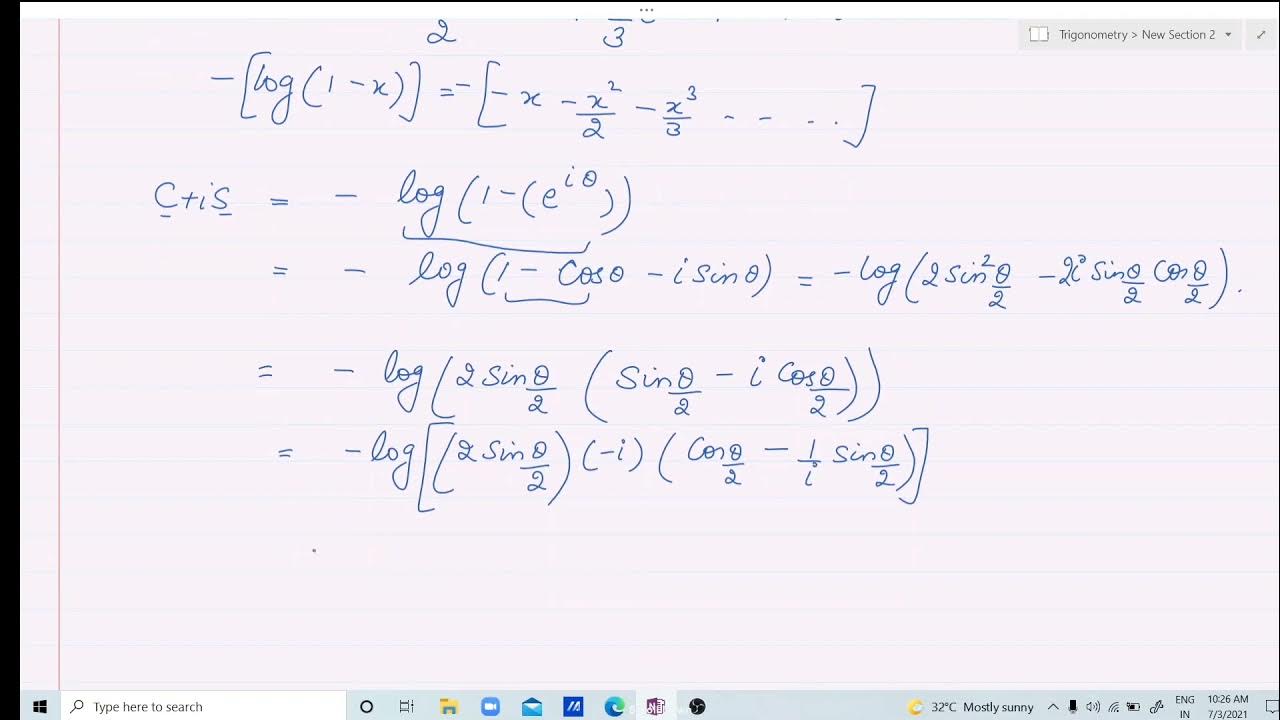 ...
2 3
Trigonometry > New Section 2
-[log(1-x)] = -[-x - x²/2 - x³/3 - - ...]
C+iS = - log(1-(e^{iθ}))
= - log(1 - Cosθ - i Sinθ) = -log(2 Sin²θ/2 - 2i Sinθ/2 Cosθ/2).
= - log(2 Sinθ/2 (Sinθ/2 - i Cosθ/2))
= -log[(2 Sinθ/2)(-i)(Cosθ/2 - 1/i Sinθ/2)]
Type here to search
32°C Mostly sunny
ENG
IN
10:26 AM
7/3/2021